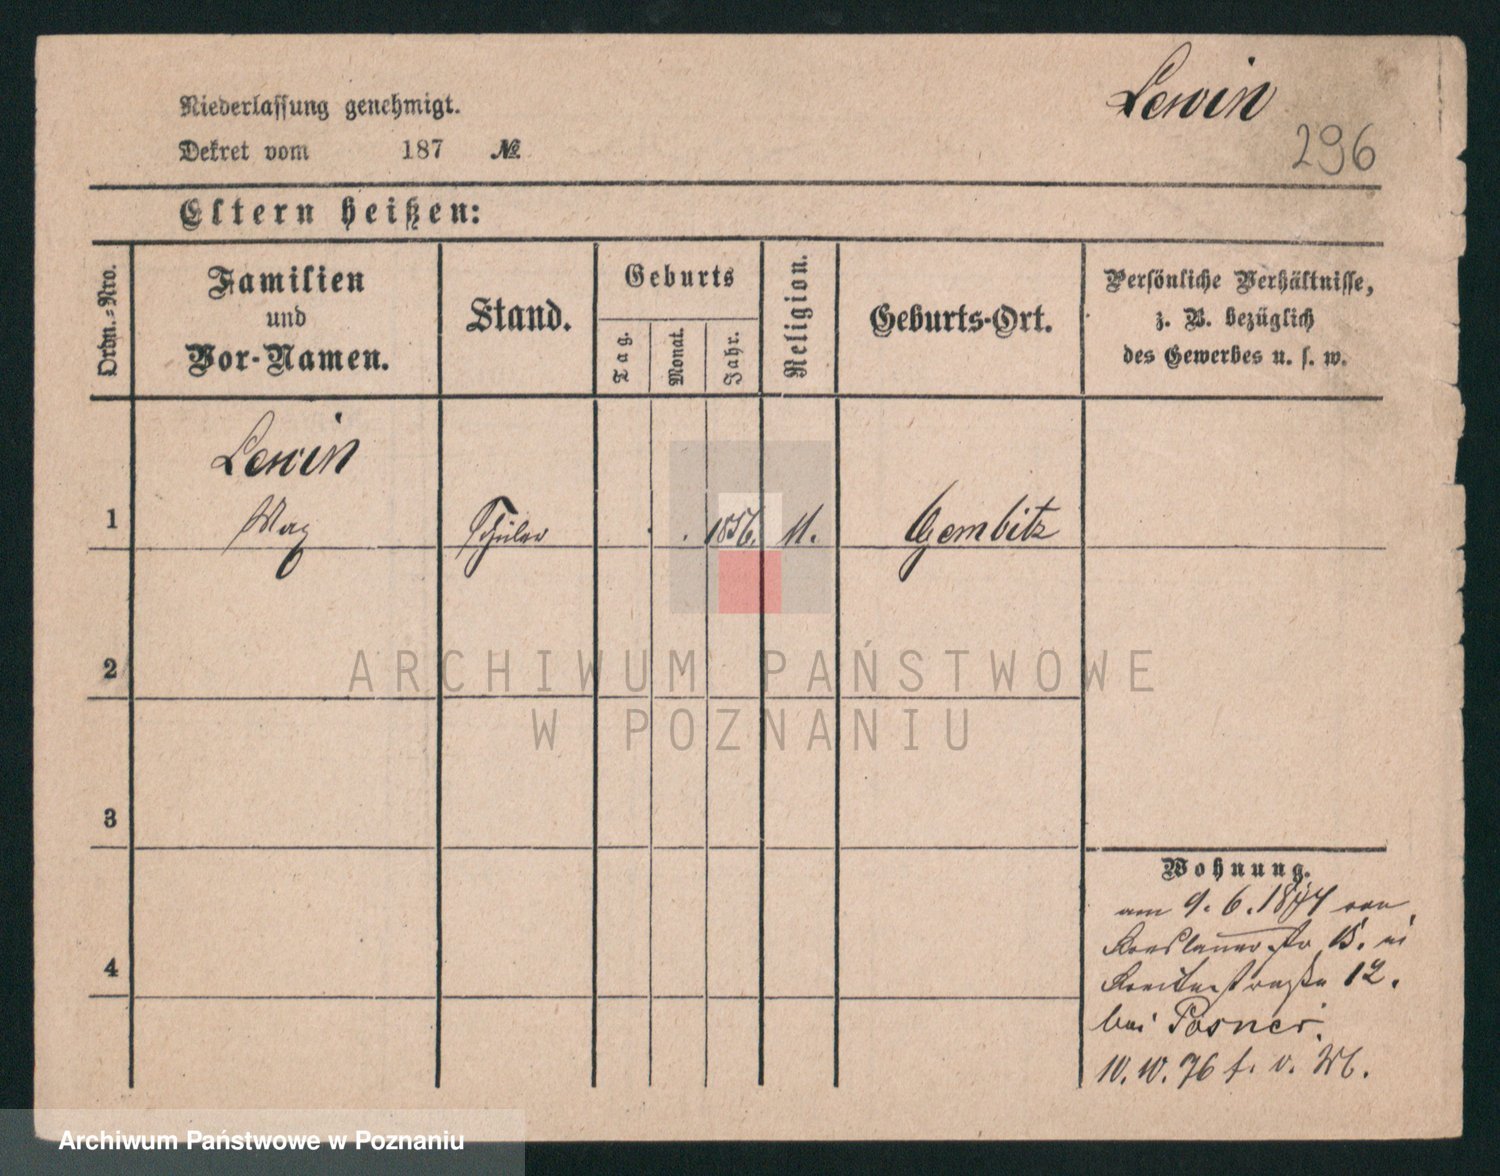 Lewin
296
Niederlassung genehmigt.
Dekret vom 187 №
Eltern heißen:
Ordn.-Nro.
Familien
und
Vor-Namen.
Stand.
Geburts
Tag.
Monat.
Jahr.
Religion.
Geburts-Ort.
Persönliche Verhältnisse,
z. B. bezüglich
des Gewerbes u. s. w.
Lewin
1 Max Schüler 1856. M. Gembitz
2
3
4
Wohnung.
am 9. 6. 1874 von
Breslauerstr 15. in
Breitestraße 12.
bei Posner.
10. 10. 76 f. v.
ARCHIWUM PAŃSTWOWE
W POZNANIU
Archiwum Państwowe w Poznaniu